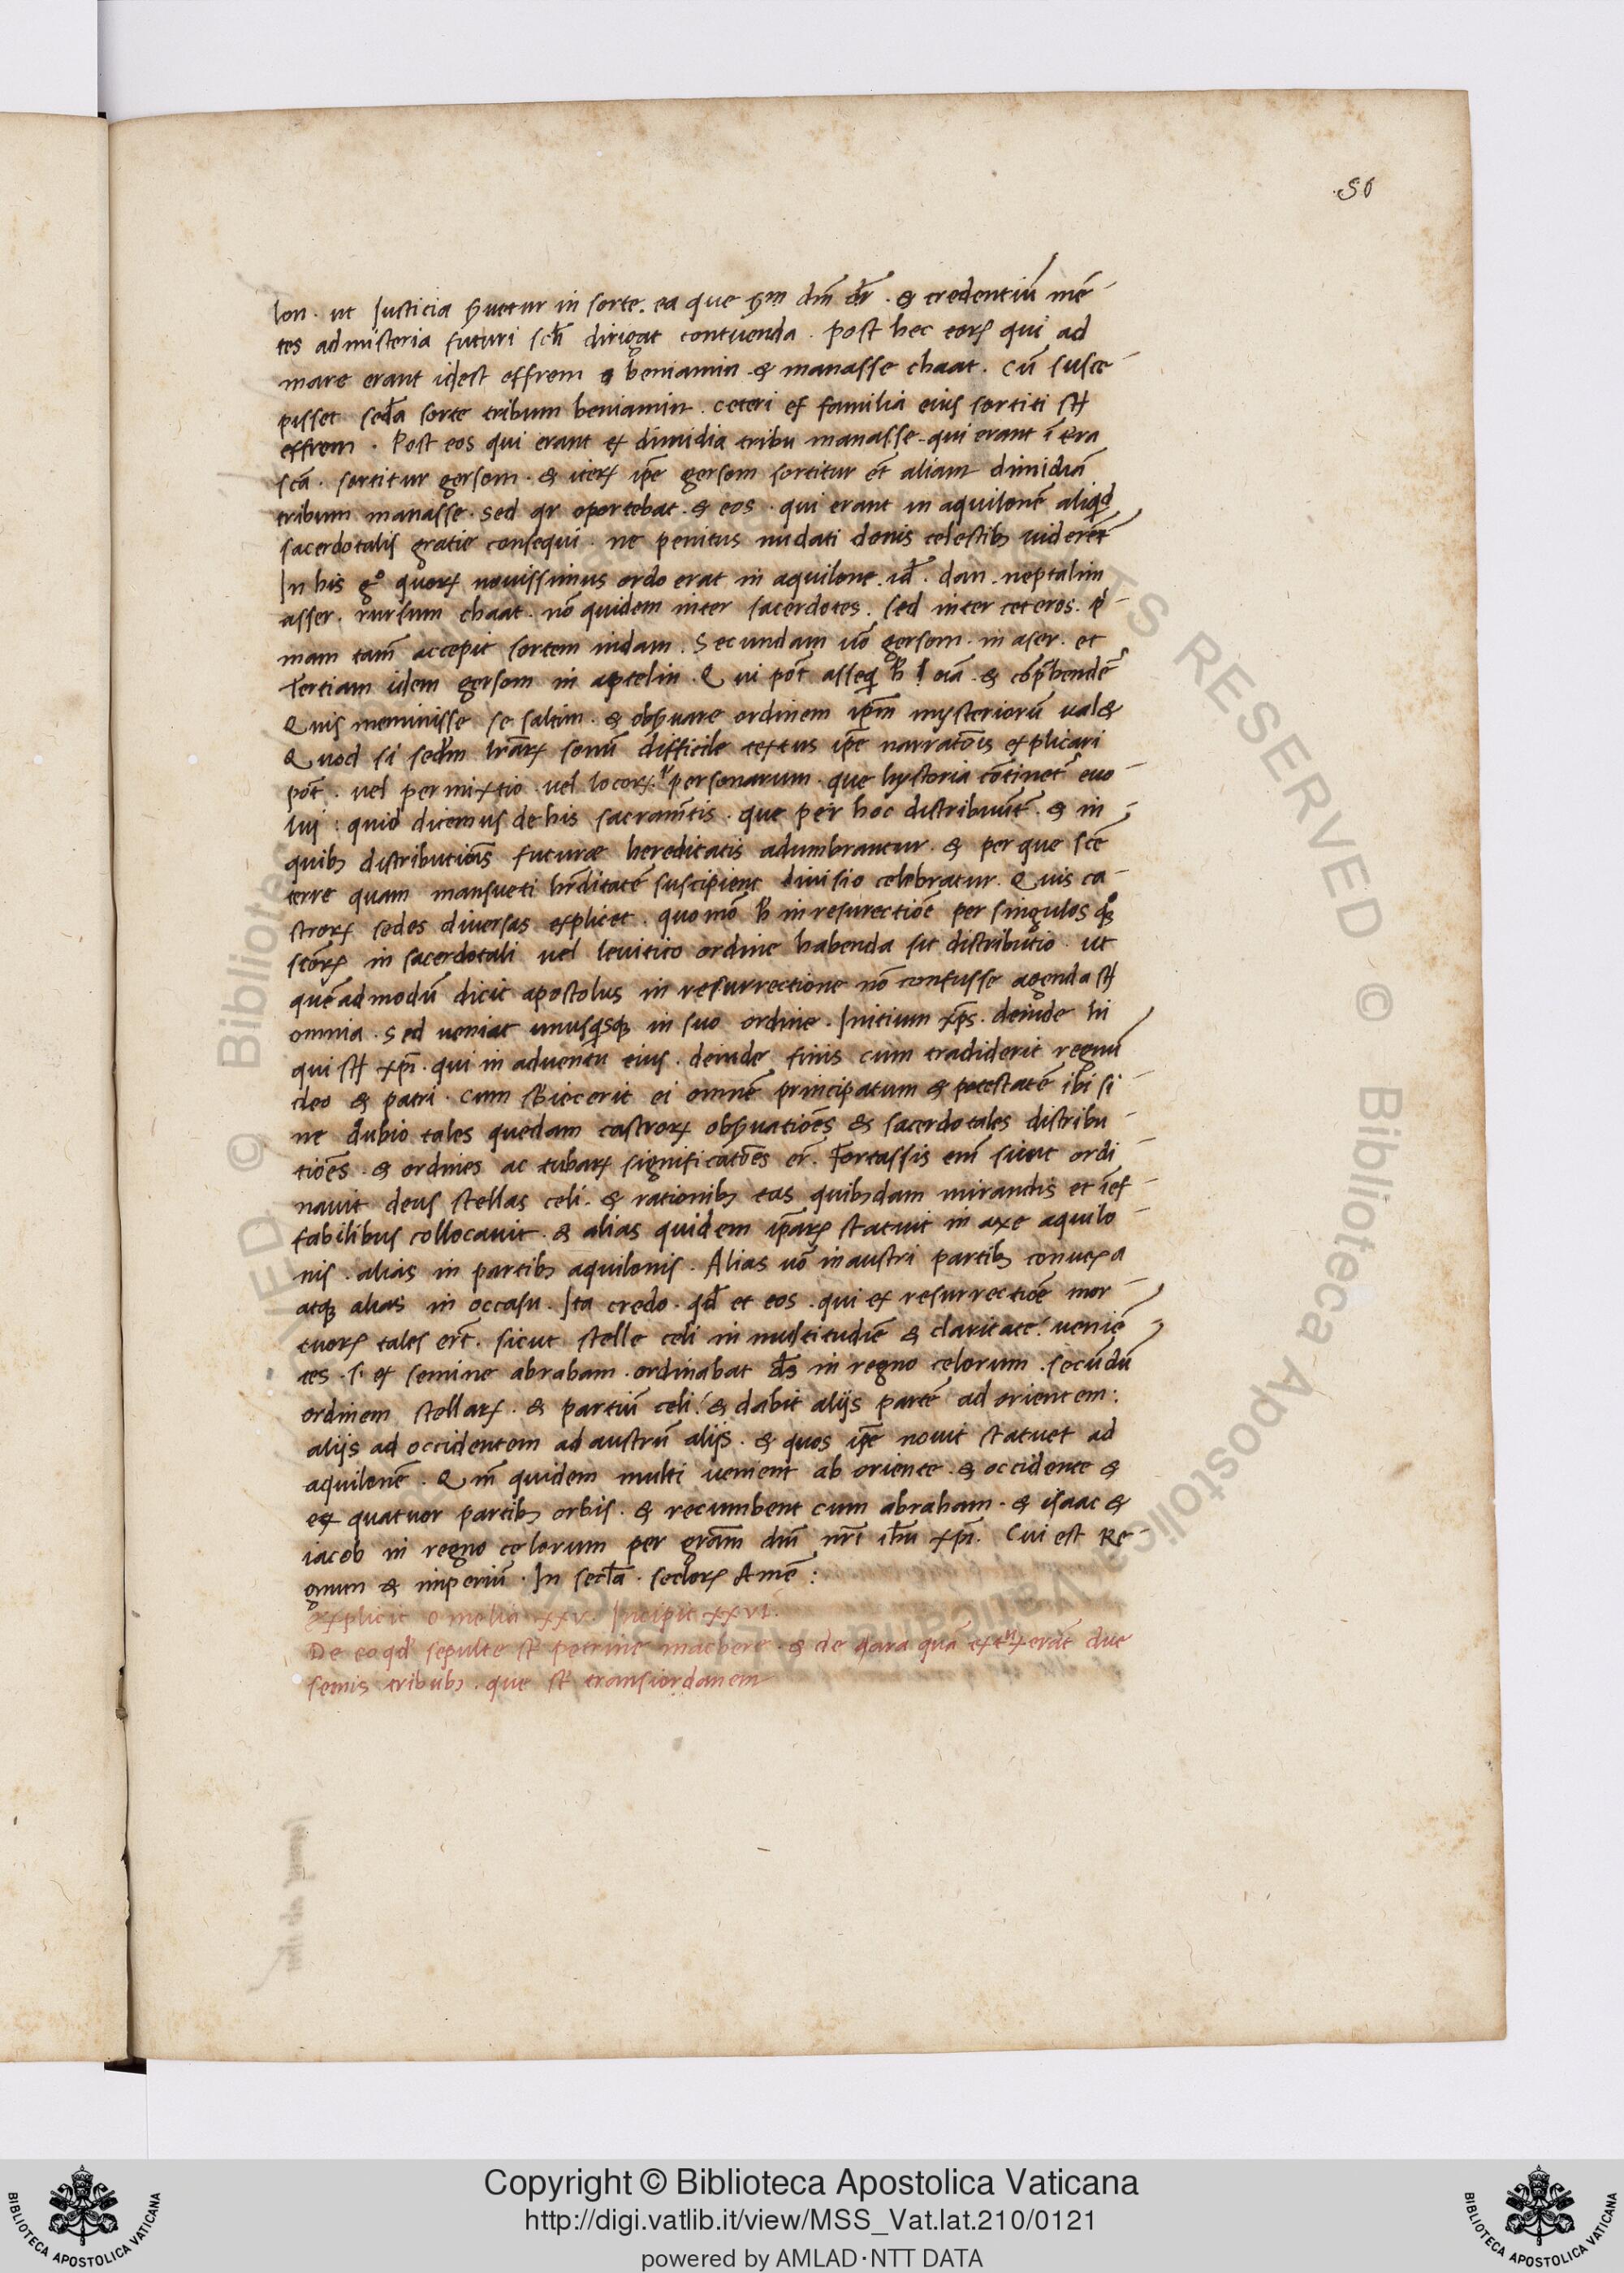 .56
lon. ut Iusticia ꝑuetur in sorte. ea que ꝑm dm̄ dr̄. & credentiū mē-
tes admisteria futuri scl̄i dirigat contuenda. post hec eorꝝ qui ad
mare erant idest effrem beniamin & manasse chaat. cū susce-
pisset seda sorte tribum beniamin. ceteri ex familia eius sortiti st̄
effrem. Post eos qui erant ex dimidia tribu manasse qui erant ī tr̄a
scā. sortitur gersom. & iterꝝ ip̄e gersom sortitur et̄ aliam dimidiā
tribum manasse. sed qr oportebat. & eos. qui erant in aquilonē aliqd
sacerdotalis gratie consequi. ne penitus nudati donis celestibꝫ uiderēt
In his gº quorꝝ nouissimus ordo erat in aquilone. id̄. dan. neptalim
asser. rursum chaat. nō quidem inter sacerdotes. sed inter ceteros. p̄-
mam tam̄ accepit sortem indam. Secundam uō gersom. in aser. et
Tertiam idem gersom in aptelin. Qui pōt asseq̄ oīa. & cōp̄hendē
Quis meminisse se saltim. & obꝑuare ordinem ip̄m mysteriorū ual&
Quod si sedm̄ lrārꝝ sonū difficile textus ip̄e narratōis explicari
pōt. vel permixtio. vel locorꝝ. personarum. que hystoria cōtinetᵉ euo-
lui: quid dicemus de his sacramtis. que per hoc distribuūt. & in
quibꝫ distributiōis futuræ hereditatis adumbrantur. & per que scē
terre quam mansueti hr̄ditatē suscipient diuisio celebratur. Quis ca-
strorꝝ sedes diuersas explicet. quomō in resurectiōe per singulos qꝫ
scōrꝝ in sacerdotali uel leuitico ordine habenda sit distributio. ut
quēadmodū dicit apostolus in resurrectione nō confusse agenda st̄
omnia. Sed ueniat unusqsqꝫ in suo ordine. Initium xp̄s. deinde hi
qui st̄ xp̄i. qui in aduentu eius. deinde finis cum tradiderit regnū
deo & patri. cum sbiecerit ei omnē principatum & potestatē ibi si-
ne dubio tales quedam castrorꝝ obꝑuatiōes & sacerdotales distribu-
tiōes. & ordines ac tubarꝝ significatōes er̄. Fortassis enī sicut ordi-
nauit deus stellas celi. & rationibꝫ eas quibꝫdam mirandis et īef-
fabilibus collocauit. & alias quidem ip̄arꝝ statuit in axe aquilo-
nis. alias in partibꝫ aquilonis. Alias uō in austri partibꝫ conuexa
atqꝫ alias in occasu. Ita credo. qd̄ et eos. qui ex resurrectiōe mor-
tuorꝝ tales ert̄. sicut stelle celi in multitudiē & claritate. ueniē-
tes. s. ex semine abraham. ordinabat ds̄ in regno celorum. secundū
ordinem stellarꝝ. & partiū celi. & dabit aliis partē ad orientem:
aliis ad occidentem ad austrū aliis. & quos ip̄e nouit statuet ad
aquilonē. Qm̄ quidem multi uenient ab oriente. & occidente &
ex quatuor partibꝫ orbis. & recumbent cum abraham. & isaac &
iacob in regno celorum per gram̄ dn̄i nr̄i ih̄u xp̄i. Cui est Re-
gnum & imperiū. In secla. seclorꝝ Amē:
Explicit omelia xxv. Incipit xxvi.
De eo qd̄ sepulte st̄ petrine machere. & de qara quā extruxerāt due
semis tribubꝫ. que st̄ transiordanem
© Biblioteca Apostolica Vaticana
ALL RIGHTS RESERVED
Copyright © Biblioteca Apostolica Vaticana
http://digi.vatlib.it/view/MSS_Vat.lat.210/0121
powered by AMLAD·NTT DATA
BIBLIOTECA APOSTOLICA VATICANA
BIBLIOTECA APOSTOLICA VATICANA